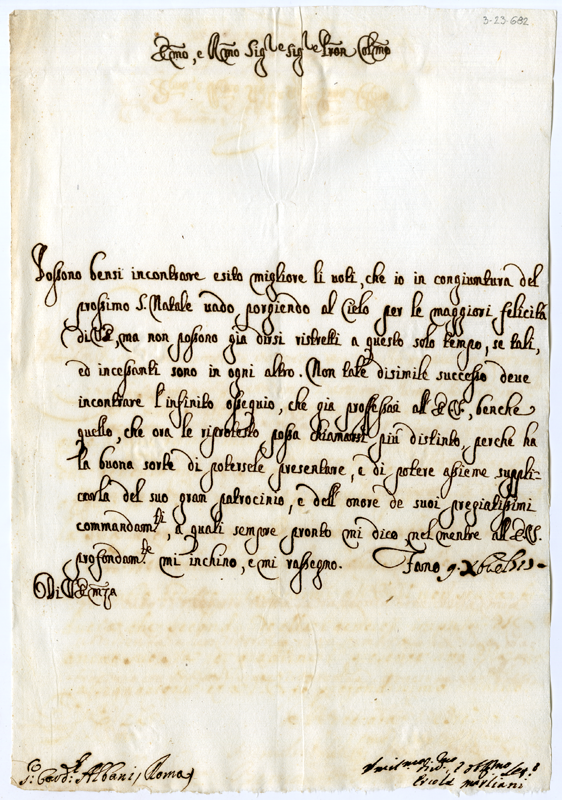 3-23-682
Emo, e Rmo Sig.re sig.re Pron Colmo
Possono bensi incontrare esito migliore li voti, che io in congiuntura del
prossimo S. Natale vado porgiendo al Cielo per le maggiori felicità
di VE, ma non possono già dirsi ristretti a questo solo tempo, se tali,
ed incessanti sono in ogni altro. Non tale disimile successo deve
incontrare l'infinito ossequio, che già professai all'E.V., benche
quello, che ora le riprotesto possa chiamarsi più distinto, perche ha
la buona sorte di potersele presentare, e di potere assieme suppli-
carla del suo gran patrocinio, e dell'onore de suoi pregiatissimi
commandam.ti, a quali sempre pronto mi dico, nel mentre all'E.V.
profondam.te mi inchino, e mi rassegno. Fano 9. Xbre
Di V. Emza
S. Card. Albani / Roma
Umil.mo Dev. Obl.mo Ser.